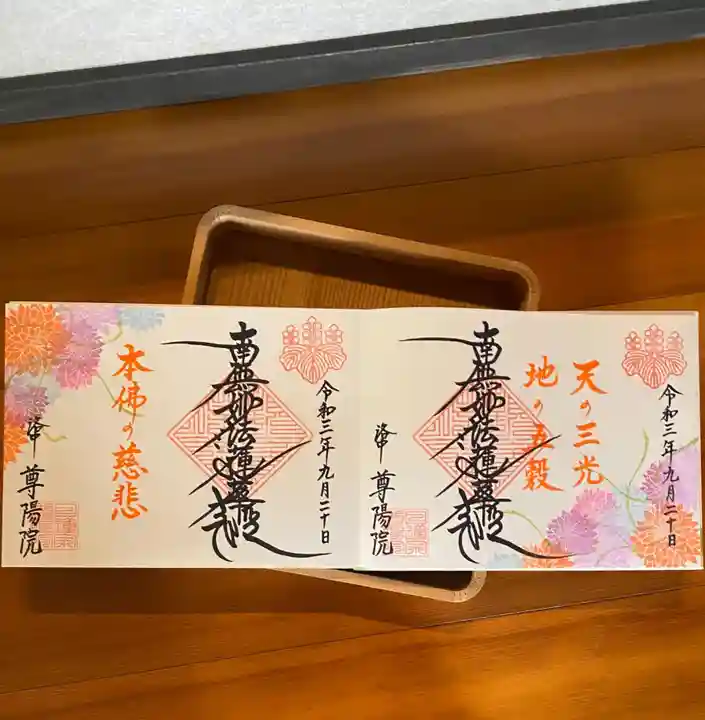 令和三年九月二十日
天の三光
地の五穀
南無妙法蓮華経
洛中 尊陽院
令和三年九月二十日
南無妙法蓮華経
本佛の慈悲
洛中 尊陽院